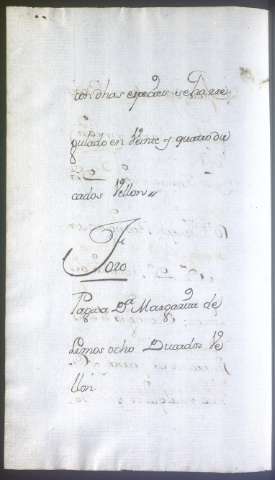 con dhas espezies se ha rre
gulado en Veinte y quatro du
cados Vellon //
Foro
Pagua Dª Margarita de
Lemos ocho Ducados Ve
llon